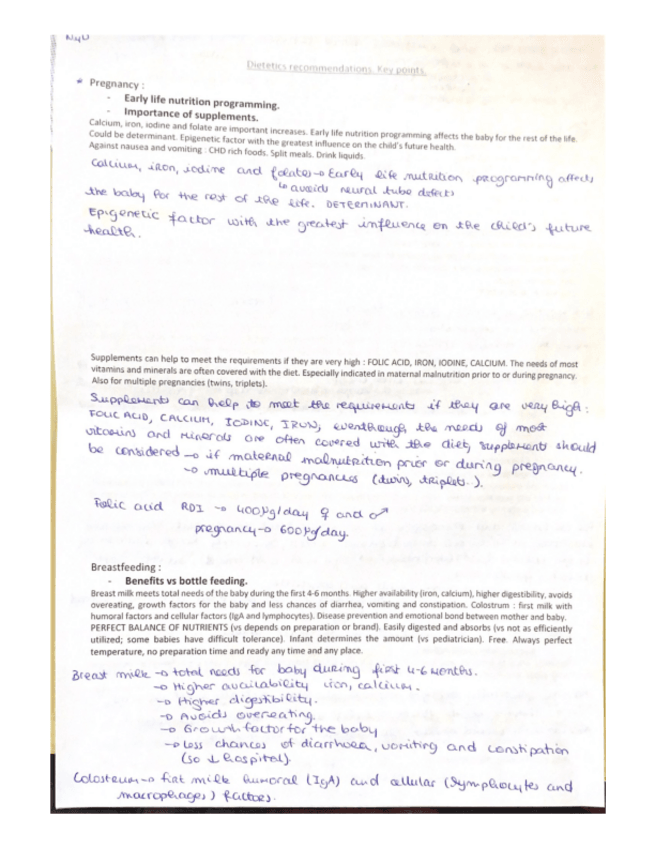 N4U
Dietetics recommendations. Key points.
* Pregnancy :
- Early life nutrition programming.
- Importance of supplements.
Calcium, iron, iodine and folate are important increases. Early life nutrition programming affects the baby for the rest of the life.
Could be determinant. Epigenetic factor with the greatest influence on the child's future health.
Against nausea and vomiting : CHD rich foods. Split meals. Drink liquids.
Calcium, iron, iodine and folate → Early life nutrition programming affects
↳ avoids neural tube defects
the baby for the rest of the life. DETERMINANT.
Epigenetic factor with the greatest influence on the child's future
health.
Supplements can help to meet the requirements if they are very high : FOLIC ACID, IRON, IODINE, CALCIUM. The needs of most
vitamins and minerals are often covered with the diet. Especially indicated in maternal malnutrition prior to or during pregnancy.
Also for multiple pregnancies (twins, triplets).
Supplements can help to meet the requirements if they are very high:
FOLIC ACID, CALCIUM, IODINE, IRON, eventhough the needs of most
vitamins and minerals are often covered with the diet, supplements should
be considered → if maternal malnutrition prior or during pregnancy.
→ multiple pregnancies (twins, triplets..).
Folic acid RDI → 400 µg/day ♀ and ♂
pregnancy → 600 µg/day.
Breastfeeding :
- Benefits vs bottle feeding.
Breast milk meets total needs of the baby during the first 4-6 months. Higher availability (iron, calcium), higher digestibility, avoids
overeating, growth factors for the baby and less chances of diarrhea, vomiting and constipation. Colostrum : first milk with
humoral factors and cellular factors (IgA and lymphocytes). Disease prevention and emotional bond between mother and baby.
PERFECT BALANCE OF NUTRIENTS (vs depends on preparation or brand). Easily digested and absorbs (vs not as efficiently
utilized; some babies have difficult tolerance). Infant determines the amount (vs pediatrician). Free. Always perfect
temperature, no preparation time and ready any time and any place.
Breast milk → total needs for baby during first 4-6 months.
→ Higher availability iron, calcium.
→ Higher digestibility.
→ Avoids overeating.
→ Growth factor for the baby
→ Less chances of diarrhoea, vomiting and constipation
(so ↓ hospital).
Colosteum → fist milk humoral (IgA) and cellular (lymphocytes and
macrophages) factors.